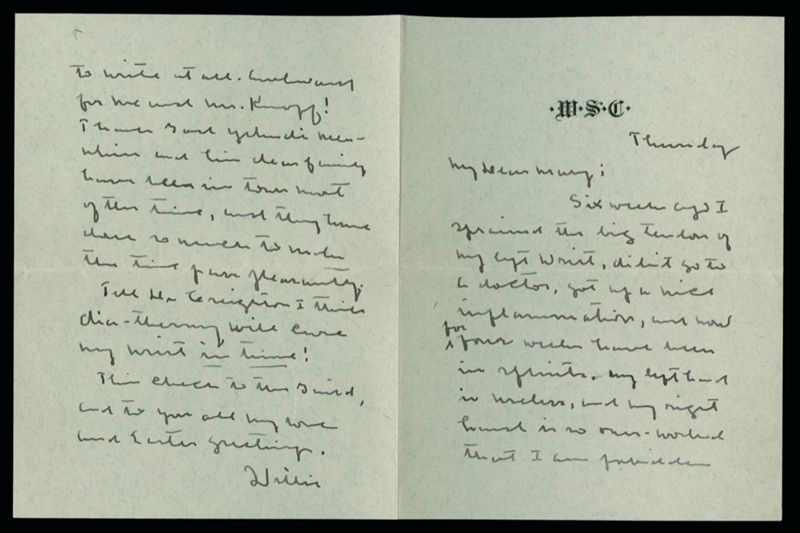 ·W·S·C·
Thursday
My Dear Mary;
Six weeks ago I
sprained the big tendon of
my left wrist, didn't go to
a doctor, got up a nice
inflammation, and now
for
four weeks have been
in splints. My left hand
is useless, and my right
hand is so over-worked
that I am forbidden
to write at all. Awkward
for me and Mr. Knopf!
Thank God Yehudi Menu-
uhin and his dear family
have been in town most
of this time, and they have
done so much to make
the time pass pleasantly.
Tell Dr. Creighton I think
dia-thermy will cure
my wrist in time!
This check to the Guild,
and to you all my love
and Easter greetings.
Willie